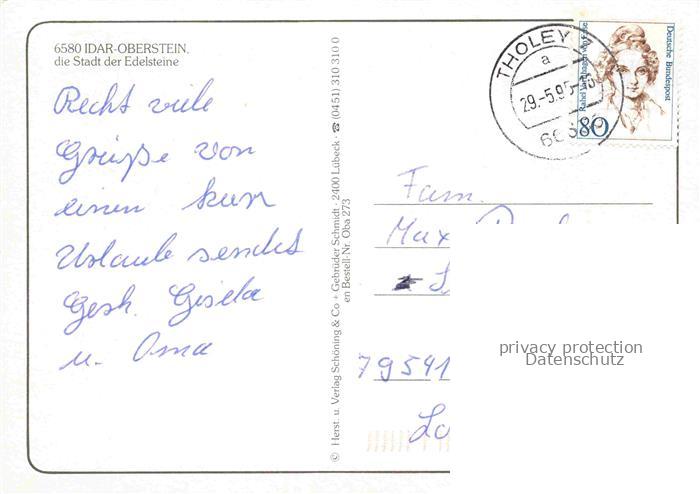 6580 IDAR-OBERSTEIN,
die Stadt der Edelsteine
Recht viele
Grüße von
einen kurn
Urlaube sendet
Gesh. Gisela
u. Oma
© Herst. u. Verlag Schöning & Co + Gebrüder Schmidt · 2400 Lübeck ☎ (0451) 310 310 0
en Bestell-Nr. Oba 273
THOLEY 1
a
29.-5.95
Deutsche Bundespost
80
Fam.
Max
79541
Lö
privacy protection
Datenschutz